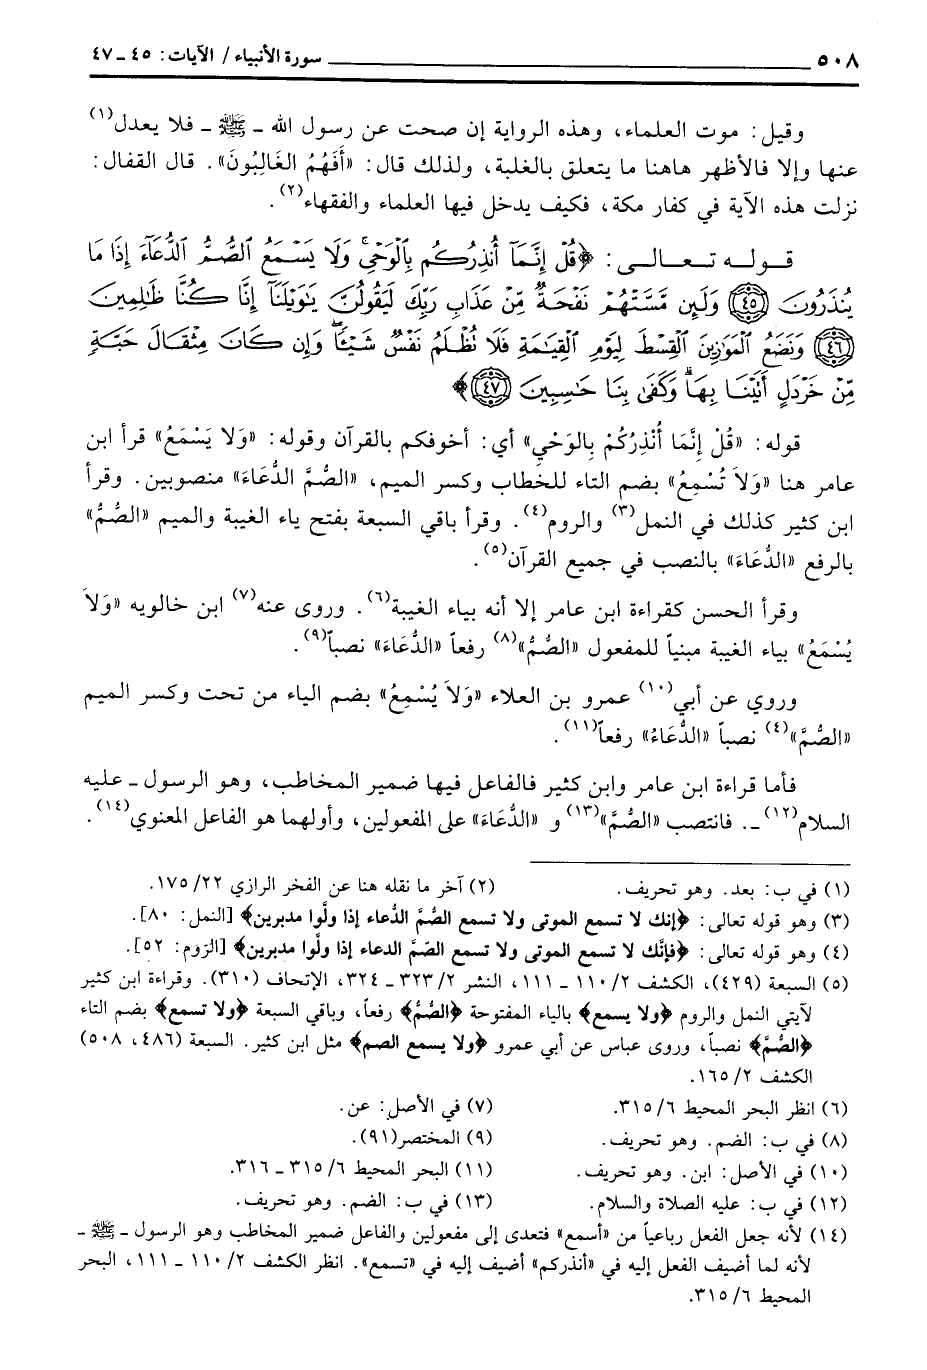 ٥٠٨ ــــــ سورة الأنبياء / الآيات: ٤٥ ـ ٤٧
وقيل: موت العلماء، وهذه الرواية إن صحت عن رسول الله ـ ﷺ ـ فلا يعدل(١)
عنها وإلا فالأظهر هاهنا ما يتعلق بالغلبة، ولذلك قال: «أَفَهُمُ الغَالِبُونَ». قال القفال:
نزلت هذه الآية في كفار مكة، فكيف يدخل فيها العلماء والفقهاء(٢).
قوله تعالى: ﴿قُلْ إِنَّمَآ أُنذِرُكُم بِٱلْوَحْىِۚ وَلَا يَسْمَعُ ٱلصُّمُّ ٱلدُّعَآءَ إِذَا مَا
يُنذَرُونَ ﴿٤٥﴾ وَلَئِن مَّسَّتْهُمْ نَفْحَةٌ مِّنْ عَذَابِ رَبِّكَ لَيَقُولُنَّ يَٰوَيْلَنَآ إِنَّا كُنَّا ظَٰلِمِينَ
﴿٤٦﴾ وَنَضَعُ ٱلْمَوَٰزِينَ ٱلْقِسْطَ لِيَوْمِ ٱلْقِيَٰمَةِ فَلَا تُظْلَمُ نَفْسٌ شَيْـًٔاۖ وَإِن كَانَ مِثْقَالَ حَبَّةٍ
مِّنْ خَرْدَلٍ أَتَيْنَا بِهَاۗ وَكَفَىٰ بِنَا حَٰسِبِينَ ﴿٤٧﴾﴾
قوله: «قُلْ إِنَّمَا أُنْذِرُكُمْ بِالوَحْيِ» أي: أخوفكم بالقرآن وقوله: «وَلا يَسْمَعُ» قرأ ابن
عامر هنا «وَلاَ تُسْمِعُ» بضم التاء للخطاب وكسر الميم، «الصُّمَّ الدُّعَاءَ» منصوبين. وقرأ
ابن كثير كذلك في النمل(٣) والروم(٤). وقرأ باقي السبعة بفتح ياء الغيبة والميم «الصُّمُّ»
بالرفع «الدُّعَاءَ» بالنصب في جميع القرآن(٥).
وقرأ الحسن كقراءة ابن عامر إلا أنه بياء الغيبة(٦). وروى عنه(٧) ابن خالويه «وَلاَ
يُسْمَعُ» بياء الغيبة مبنياً للمفعول «الصُّمُّ»(٨) رفعاً «الدُّعَاءَ» نصباً(٩).
وروي عن أبي(١٠) عمرو بن العلاء «وَلاَ يُسْمِعُ» بضم الياء من تحت وكسر الميم
«الصُّمَّ»(٤) نصباً «الدُّعَاءُ» رفعاً(١١).
فأما قراءة ابن عامر وابن كثير فالفاعل فيها ضمير المخاطب، وهو الرسول ـ عليه
السلام(١٢) ـ. فانتصب «الصُّمَّ»(١٣) و «الدُّعَاءَ» على المفعولين، وأولهما هو الفاعل المعنوي(١٤).
(١) في ب: بعد. وهو تحريف. (٢) آخر ما نقله هنا عن الفخر الرازي ٢٢/ ١٧٥.
(٣) وهو قوله تعالى: ﴿إنك لا تسمع الموتى ولا تسمع الصُّمَّ الدُّعاء إذا ولَّوا مدبرين﴾ [النمل: ٨٠].
(٤) وهو قوله تعالى: ﴿فإنَّك لا تسمع الموتى ولا تسمع الصّمَّ الدعاء إذا ولَّوا مدبرين﴾ [الرّوم: ٥٢].
(٥) السبعة (٤٢٩)، الكشف ٢/ ١١٠ ـ ١١١، النشر ٢/ ٣٢٣ ـ ٣٢٤، الإتحاف (٣١٠). وقراءة ابن كثير
لآيتي النمل والروم ﴿ولا يسمع﴾ بالياء المفتوحة ﴿الصُّمُّ﴾ رفعاً، وباقي السبعة ﴿ولا تسمع﴾ بضم التاء
﴿الصُّمَّ﴾ نصباً، وروى عباس عن أبي عمرو ﴿ولا يسمع الصم﴾ مثل ابن كثير. السبعة (٤٨٦، ٥٠٨)
الكشف ٢/ ١٦٥.
(٦) انظر البحر المحيط ٦/ ٣١٥. (٧) في الأصل: عن.
(٨) في ب: الضم. وهو تحريف. (٩) المختصر(٩١).
(١٠) في الأصل: ابن. وهو تحريف. (١١) البحر المحيط ٦/ ٣١٥ ـ ٣١٦.
(١٢) في ب: عليه الصلاة والسلام. (١٣) في ب: الضم. وهو تحريف.
(١٤) لأنه جعل الفعل رباعياً من «أسمع» فتعدى إلى مفعولين والفاعل ضمير المخاطب وهو الرسول ـ ﷺ ـ
لأنه لما أضيف الفعل إليه في «أنذركم» أضيف إليه في «تسمع». انظر الكشف ٢/ ١١٠ ـ ١١١، البحر
المحيط ٦/ ٣١٥.